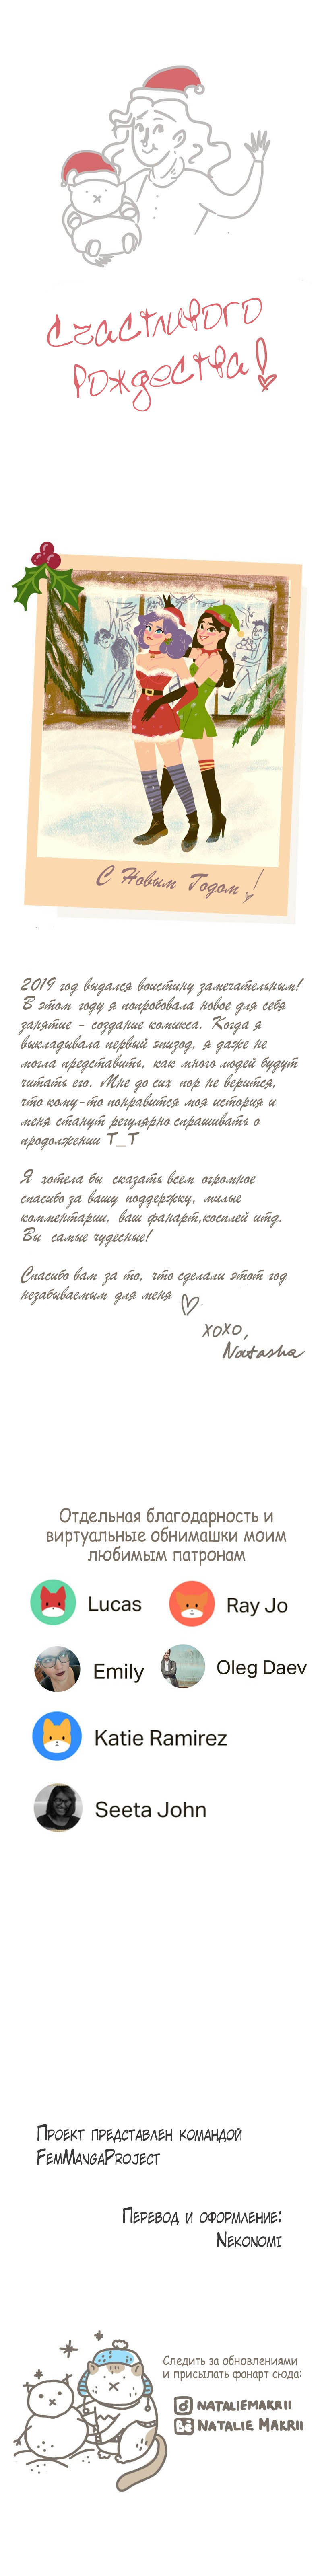 Счастливого
Рождества!
С Новым Годом!
2019 год выдался воистину замечательным!
В этом году я попробовала новое для себя
занятие - создание комикса. Когда я
выкладывала первый эпизод, я даже не
могла представить, как много людей будут
читать его. Мне до сих пор не верится,
что кому-то понравится моя история и
меня станут регулярно спрашивать о
продолжении T_T
Я хотела бы сказать всем огромное
спасибо за вашу поддержку, милые
комментарии, ваш фанарт,косплей итд.
Вы самые чудесные!
Спасибо вам за то, что сделали этот год
незабываемым для меня
xoxo,
Natasha
Отдельная благодарность и
виртуальные обнимашки моим
любимым патронам
Lucas
Ray Jo
Emily
Oleg Daev
Katie Ramirez
Seeta John
Проект представлен командой
FemMangaProject
Перевод и оформление:
Nekonomi
Следить за обновлениями
и присылать фанарт сюда:
NATALIEMAKRII
Bē NATALIE MAKRII